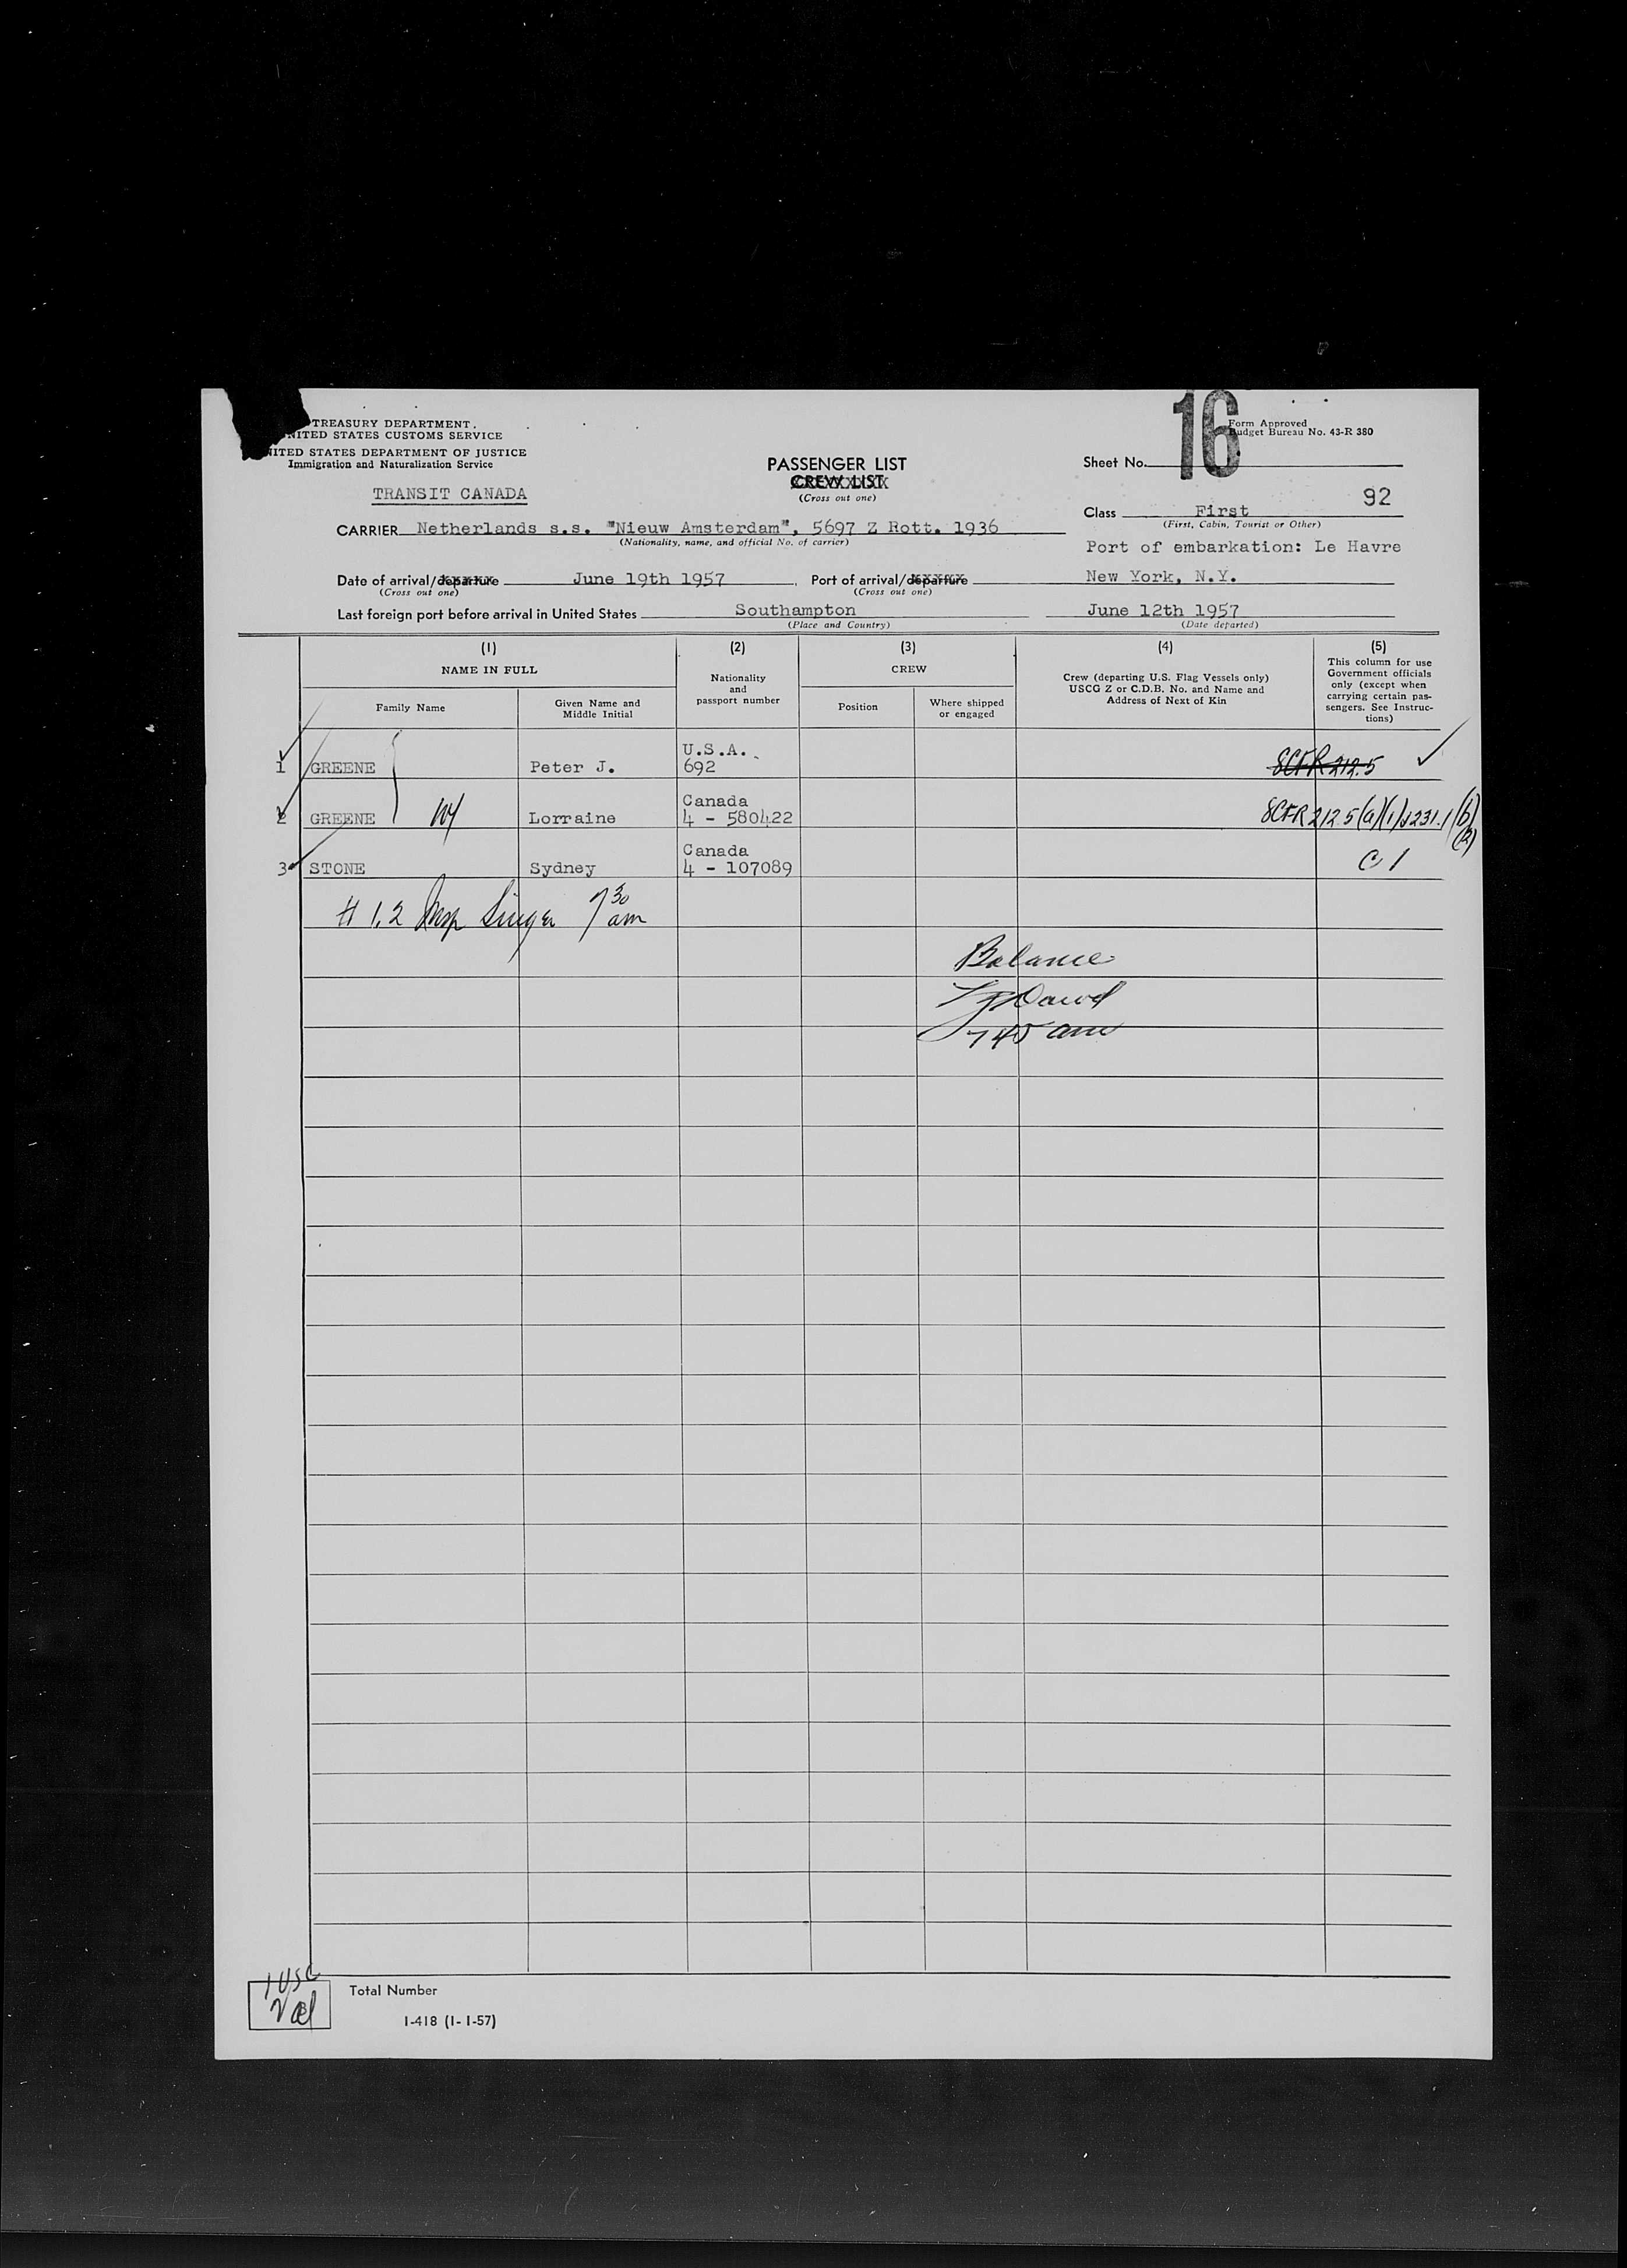 TREASURY DEPARTMENT
UNITED STATES CUSTOMS SERVICE
UNITED STATES DEPARTMENT OF JUSTICE
Immigration and Naturalization Service
TRANSIT CANADA
PASSENGER LIST
CREW LIST
(Cross out one)
16
Form Approved
Budget Bureau No. 43-R 380
Sheet No.
92
Class First
(First, Cabin, Tourist or Other)
CARRIER Netherlands s.s. "Nieuw Amsterdam", 5697 Z Rott. 1936
(Nationality, name, and official No. of carrier)
Port of embarkation: Le Havre
Date of arrival/departure June 19th 1957, Port of arrival/departure New York, N.Y.
(Cross out one) (Cross out one)
Last foreign port before arrival in United States Southampton June 12th 1957
(Place and Country) (Date departed)
(1) (2) (3) (4) (5)
NAME IN FULL
Family Name
Given Name and
Middle Initial
Nationality
and
passport number
CREW
Position
Where shipped
or engaged
Crew (departing U.S. Flag Vessels only)
USCG Z or C.D.B. No. and Name and
Address of Next of Kin
This column for use
Government officials
only (except when
carrying certain pas-
sengers. See Instruc-
tions)
U.S.A.
1 GREENE Peter J. 692 8CFR 212.5
Canada
2 GREENE Lorraine 4 - 580422 8CFR 212.5(a)(1)&231.1(b)
(2)
Canada
3 STONE Sydney 4 - 107089 C1
# 1,2 Insp Singer 7 30 am
Balance
7 45 am
1 USC
Total Number
I-418 (1-1-57)